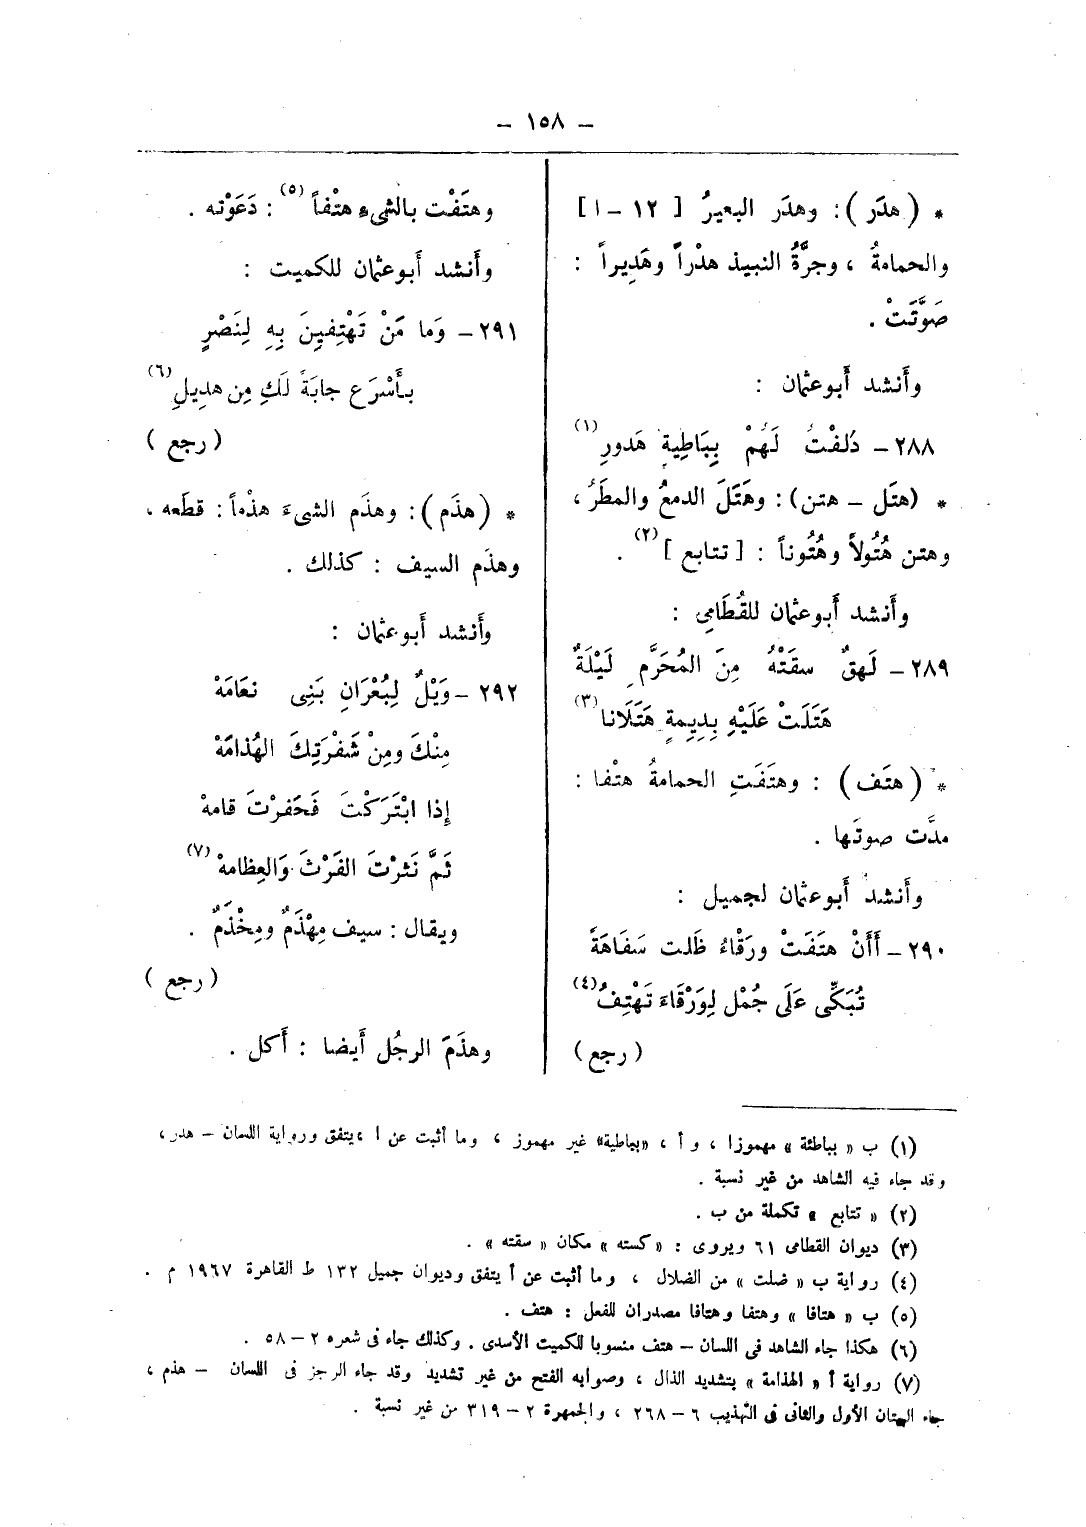 – ١٥٨ –
* (هدَر): وهدَر البعيرُ [ ١٢ – ا ]
والحمامةُ ، وجرَّةُ النبيذ هدْراً وهَدِيراً :
صَوَّتَتْ .
وأَنشد أَبو عثمان :
٢٨٨ – دُلفْتُ لَهُمْ بِبَاطِيةٍ هَدورِ (١)
* (هتَل – هتن): وهَتَلَ الدمعُ والمطَرُ ،
وهتن هُتُولاً وهُتُوناً : [ تتابع ] (٢) .
وأَنشد أَبو عثمان للقُطَامِى :
٢٨٩ – لَهِقٌ سقَتْهُ مِنَ المُحَرَّمِ لَيْلَةٌ
هَتَلَتْ عَلَيْهِ بِدِيمةٍ هَتَلَانا (٣)
* (هتَف) : وهتَفَتِ الحمامةُ هتْفا :
مدَّت صوتَها .
وأَنشد أَبو عثمان لجميل :
٢٩٠ – أَأَنْ هتَفَتْ ورَقْاءُ ظَلت سَفَاهَةً
تُبَكِّى عَلَى جُمْل لِوَرْقَاءَ تَهْتِفُ (٤)
( رجع )
وهتَفْت بالشىءِ هتْفاً (٥) : دَعَوْته .
وأَنشد أَبو عثمان للكميت :
٢٩١ – وَما مَنْ تَهْتِفِينَ بِهِ لِنَصْرٍ
بأَسْرَع جابَةً لَكِ مِن هدِيلِ (٦)
( رجع )
* (هذَم): وهذَم الشىءَ هذْماً: قطَعه ،
وهذَم السيف : كذلك .
وأَنشد أَبو عثمان :
٢٩٢ – وَيْلٌ لِبُعْرَانِ بَنِى نعَامَهْ
مِنْكَ ومِنْ شَفْرَتِكَ الهُذامَهْ
إِذا ابْتَرَكْتَ فَحَفرْتَ قامهْ
ثَمَّ نَثرْتَ الفَرْثَ وَالعِظامهْ (٧)
ويقال : سيف مِهْذَمٌ ومِخْذَمٌ .
( رجع )
وهذَمَ الرجُل أَيضا : أَكل .
(١) ب « بباطئة » مهموزا ، و أ ، «بباطية» غير مهموز ، وما أثبت عن ا يتفق ورواية اللسان – هدر ،
وقد جاء فيه الشاهد من غير نسبة .
(٢) « تتابع » تكملة من ب .
(٣) ديوان القطامى ٦١ ويروى : « كسته » مكان « سقته » .
(٤) رواية ب « ضلت » من الضلال ، وما أثبت عن أ يتفق وديوان جميل ١٣٢ ط القاهرة ١٩٦٧ م .
(٥) ب « هتافا » وهتفا وهتافا مصدران للفعل : هتف .
(٦) هكذا جاء الشاهد فى اللسان – هتف منسوبا للكميت الأسدى . وكذلك جاء فى شعره ٢ – ٥٨ .
(٧) رواية أ « الهذامة » بتشديد الذال ، وصوابه الفتح من غير تشديد وقد جاء الرجز فى اللسان – هذم ،
جاء البيتان الأول والثانى فى التهذيب ٦ – ٢٦٨ ، والجمهرة ٢ – ٣١٩ من غير نسبة .